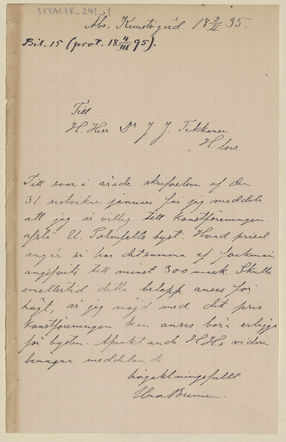 Åbo, Kunstigård 18 3/II 95.
Bil. 15 (prot. 18 4/III 95).
Till
H. Herr Dr J. J. Tikkanen
H:fors
Till svar å ärade skrifvelsen af den
31 sistvikne januari får jag meddela
att jag är villig till konstföreningen
afstå U. byst. Hvad priset
angår så har detsamma af
till minst 300 mark. Skulle
emellertid detta belopp anses för
högt, är jag nöjd med det pris
konstföreningen kan anses böra erlägga
för bysten. HHs vidare
benägna meddelande
högaktningsfullt